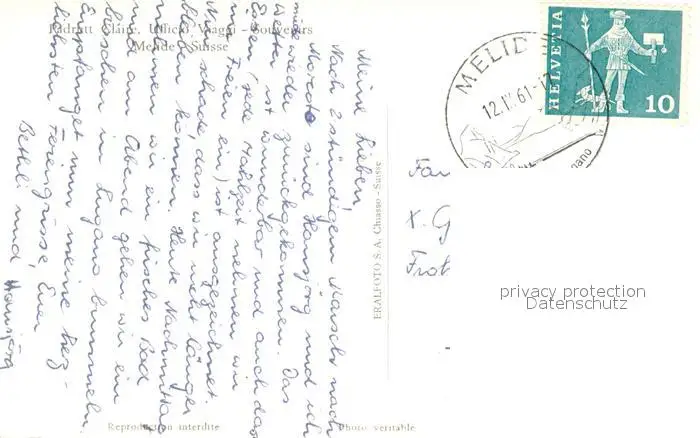 Padrutt Claire, Ufficio Viaggi - Souvenirs
Melide - Suisse
Meine Lieben,
Nach 2 stündigem Marsch nach
Morcote sind Hansjörg und ich
wieder zurückgekommen. Das
Wetter ist wunderbar und auch das
Essen (jede Mahlzeit nehmen wir
im Freien ein) ist ausgezeichnet.
Nur schade, dass wir nicht länger
bleiben können. Heute Nachmittag
nehmen wir ein frisches Bad
und am Abend gehen wir ein
bisschen in Lugano bummeln.
Empfanget nun meine herz-
lichsten Feriengrüsse, Euer
Bethli und Hansjörg
ERALFOTO S. A. Chiasso - Suisse
Reproduction interdite
Photo véritable
HELVETIA
10
MELIDE
12.IX.61-17
Fam
Frot
privacy protection
Datenschutz